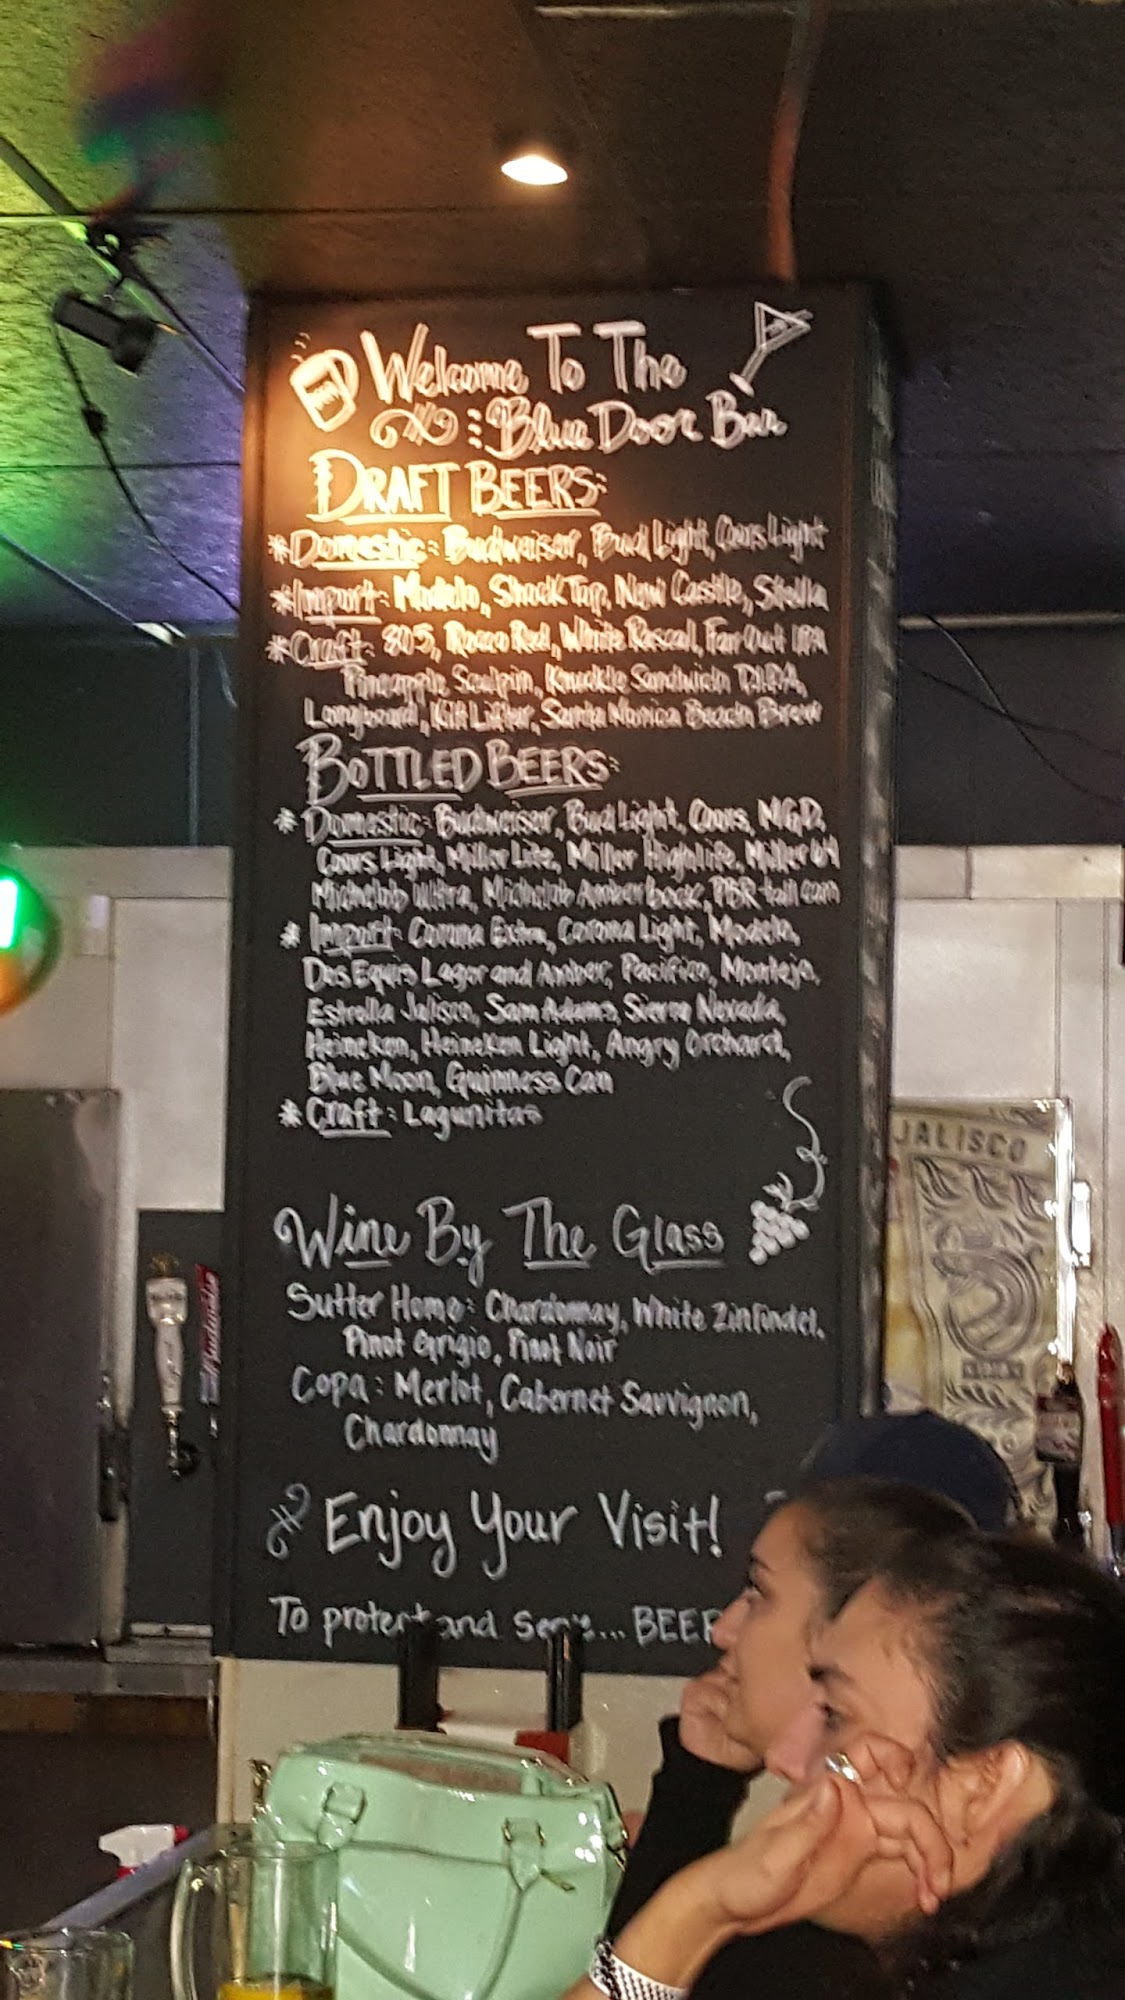 Welcome To The
Blue Door Bar
DRAFT BEERS:
*Domestic: Budweiser, Bud Light, Coors Light
*Import: Modelo, Shock Top, New Castle, Stella
*Craft: 805, Rocco Red, White Rascal, Far Out IPA
Pineapple Sculpin, Knuckle Sandwich D.I.P.A,
Longboard, Kilt Lifter, Santa Monica Beach Brew
BOTTLED BEERS:
* Domestic: Budweiser, Bud Light, Coors, MGD,
Coors Light, Miller Lite, Miller Highlife, Miller 64
Michelob Ultra, Michelob Amber bock, PBR tall can
* Import: Corona Extra, Corona Light, Modelo,
Dos Equis Lager and Amber, Pacifico, Montejo,
Estrella Jalisco, Sam Adams, Sierra Nevada,
Heineken, Heineken Light, Angry Orchard,
Blue Moon, Guinness Can
* Craft: Lagunitas
Wine By The Glass
Sutter Home: Chardonnay, White Zinfindel,
Pinot Grigio, Pinot Noir
Copa: Merlot, Cabernet Sauvignon,
Chardonnay
Enjoy Your Visit!
To protect and Serve... BEER
JALISCO
Budweiser